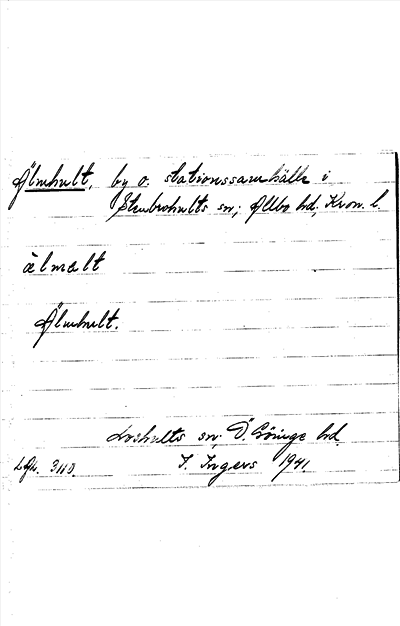 Älmhult, by o. stationssamhälle i
Stenbrohults sn; Allbo hd, Kron. l.
älmalt
Älmhult.
Loshults sn; Ö. Göinge hd.
I. Ingers 1941.